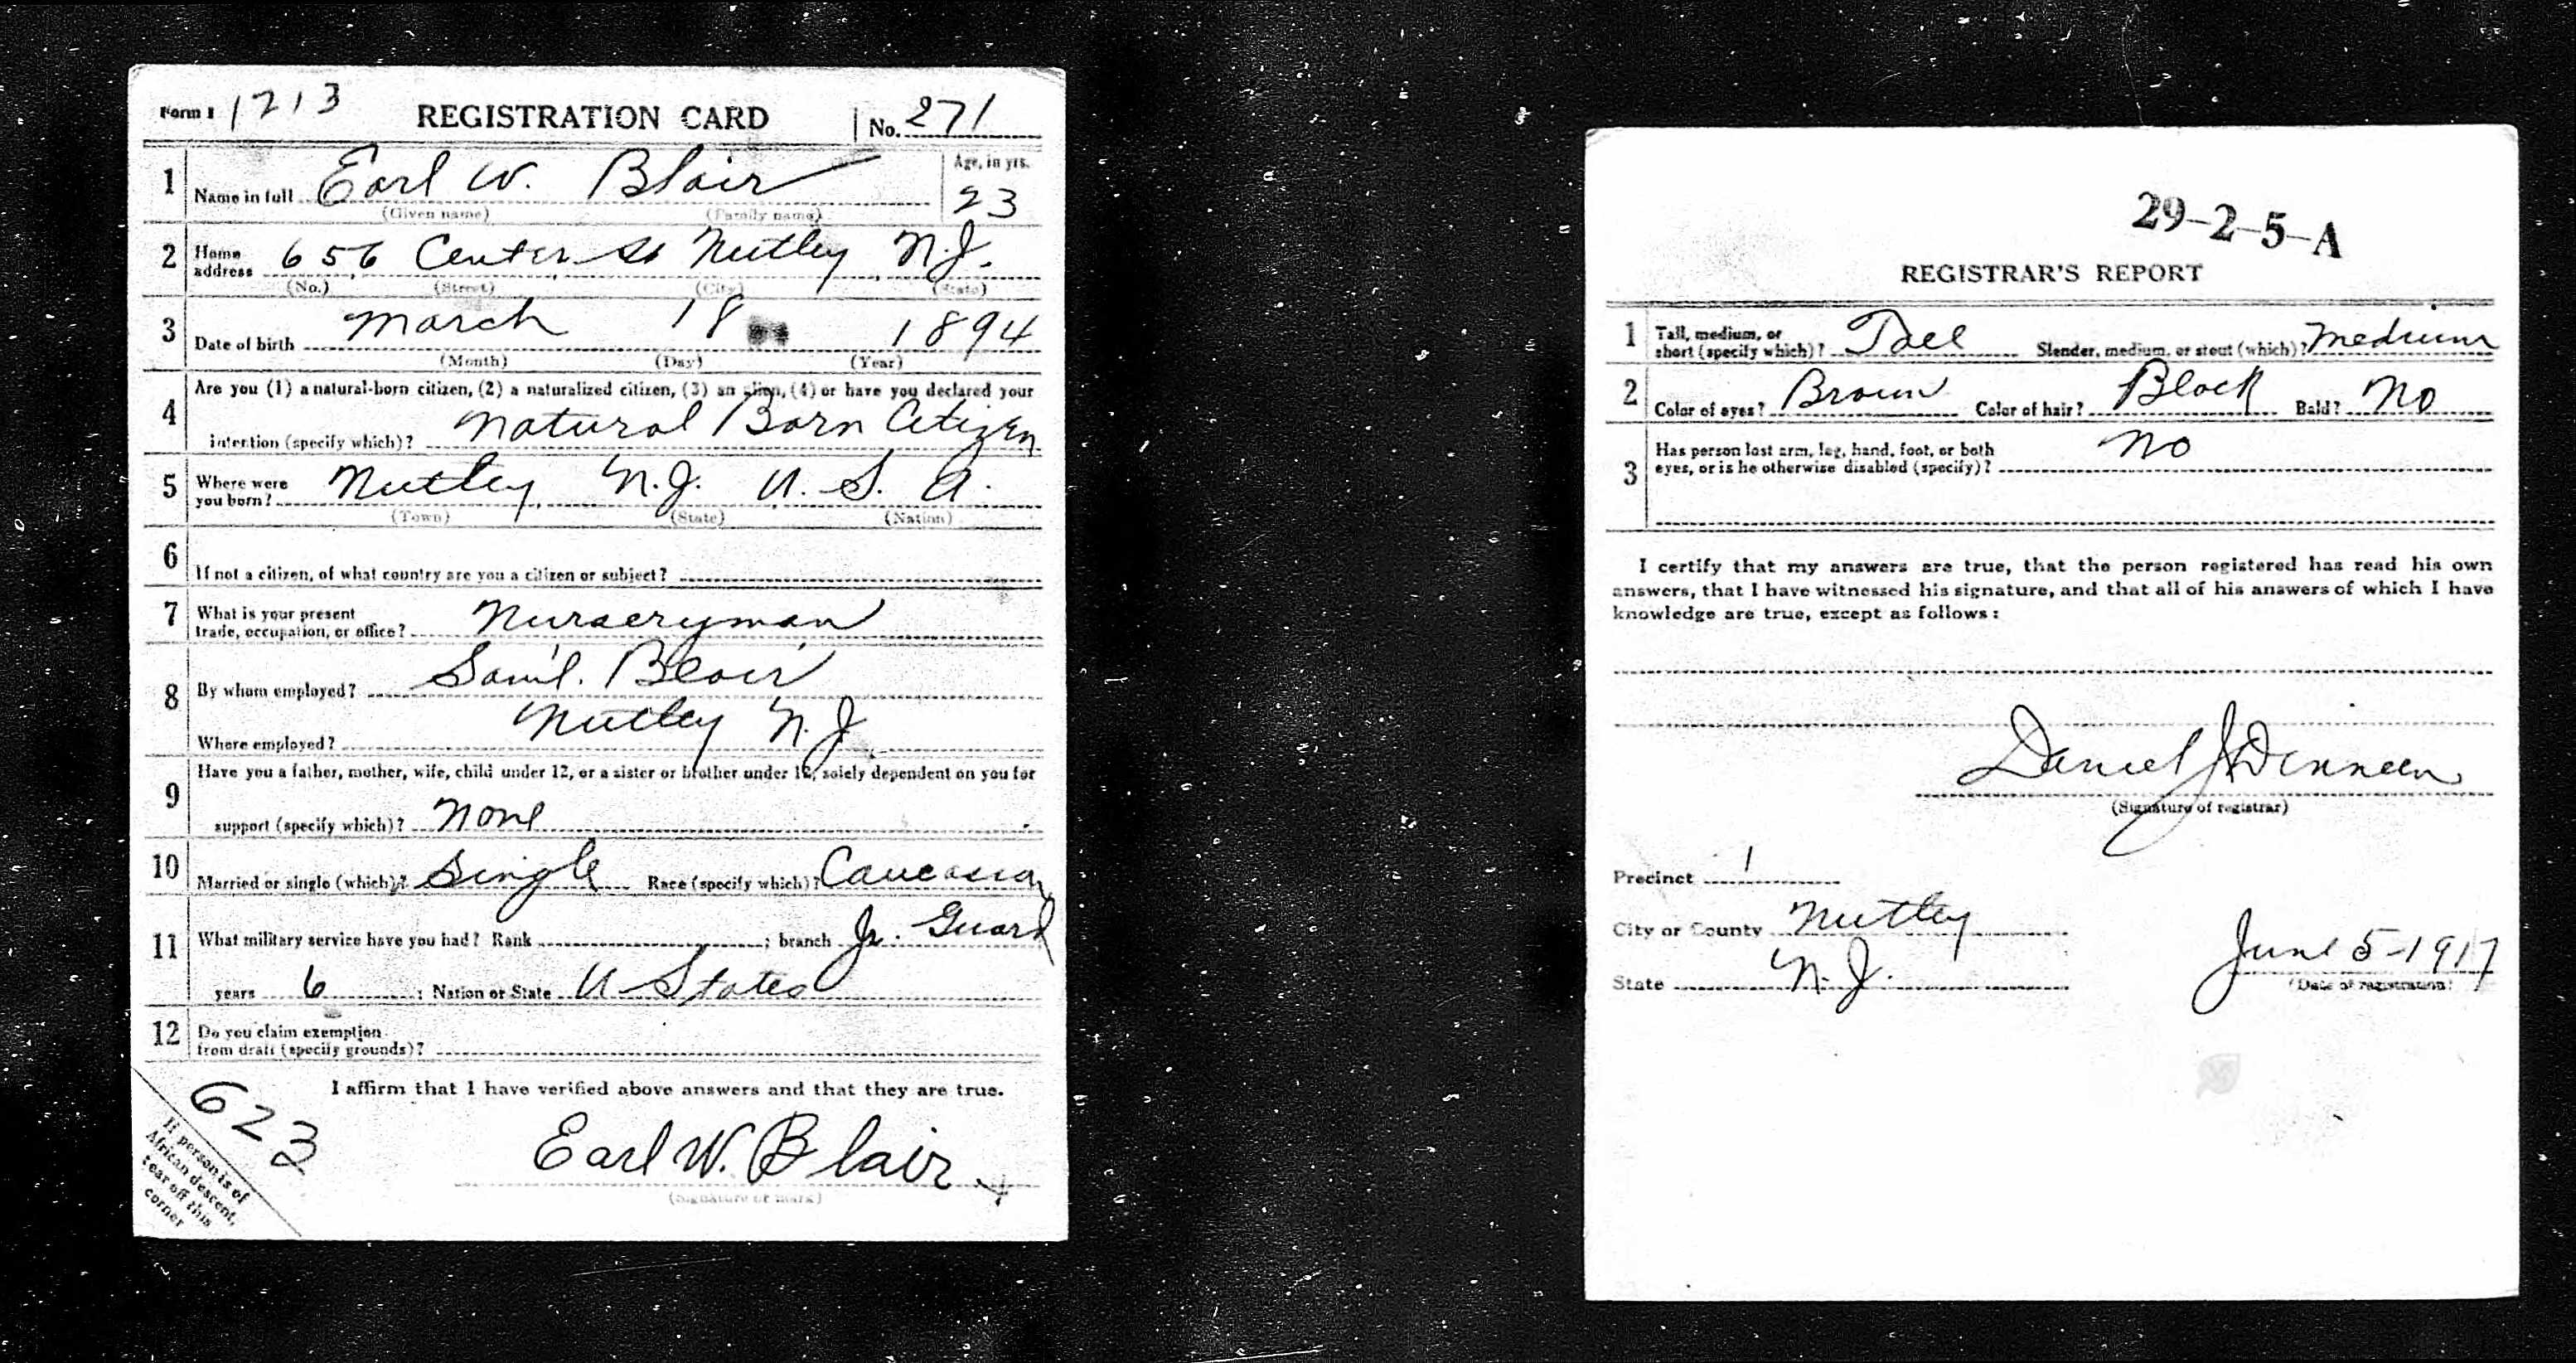 Form 1 1213 REGISTRATION CARD No. 271
1 Name in full Earl W. Blair Age, in yrs. 23
(Given name) (Family name)
2 Home address 656 Center St Nutley N.J.
(No.) (Street) (City) (State)
3 Date of birth March 18 1894
(Month) (Day) (Year)
4 Are you (1) a natural-born citizen, (2) a naturalized citizen, (3) an alien, (4) or have you declared your
intention (specify which)? Natural Born Citizen
5 Where were you born? Nutley N.J. U. S. A.
(Town) (State) (Nation)
6 If not a citizen, of what country are you a citizen or subject?
7 What is your present
trade, occupation, or office? Nurseryman
8 By whom employed? Sam'l. Blair
Where employed? Nutley N.J.
9 Have you a father, mother, wife, child under 12, or a sister or brother under 12, solely dependent on you for
support (specify which)? None
10 Married or single (which)? Single Race (specify which)? Caucasian
11 What military service have you had? Rank ; branch Jr. Guard
years 6 ; Nation or State U States
12 Do you claim exemption
from draft (specify grounds)?
I affirm that I have verified above answers and that they are true.
623
If person is of
African descent,
tear off this
corner
Earl W. Blair
(Signature or mark)
29-2-5-A
REGISTRAR'S REPORT
1 Tall, medium, or
short (specify which)? Tall Slender, medium, or stout (which)? Medium
2 Color of eyes? Brown Color of hair? Black Bald? No
3 Has person lost arm, leg, hand, foot, or both
eyes, or is he otherwise disabled (specify)? No
I certify that my answers are true, that the person registered has read his own
answers, that I have witnessed his signature, and that all of his answers of which I have
knowledge are true, except as follows:
Daniel J. Dinneen
(Signature of registrar)
Precinct 1
City or County Nutley
State N.J.
June 5-1917
(Date of registration)